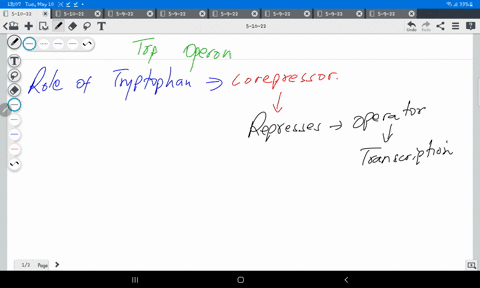 18:07 Tue, May 10
59%
5-10-22 5-10-22 5-9-22 5-9-22 5-9-22 5-9-22 5-9-22 5-9-22
5-10-22
Undo Redo
Trp Operon
Role of Tryptophan → Corepressor.
↓
Represses → operator
↓
Transcription
1/3 Page